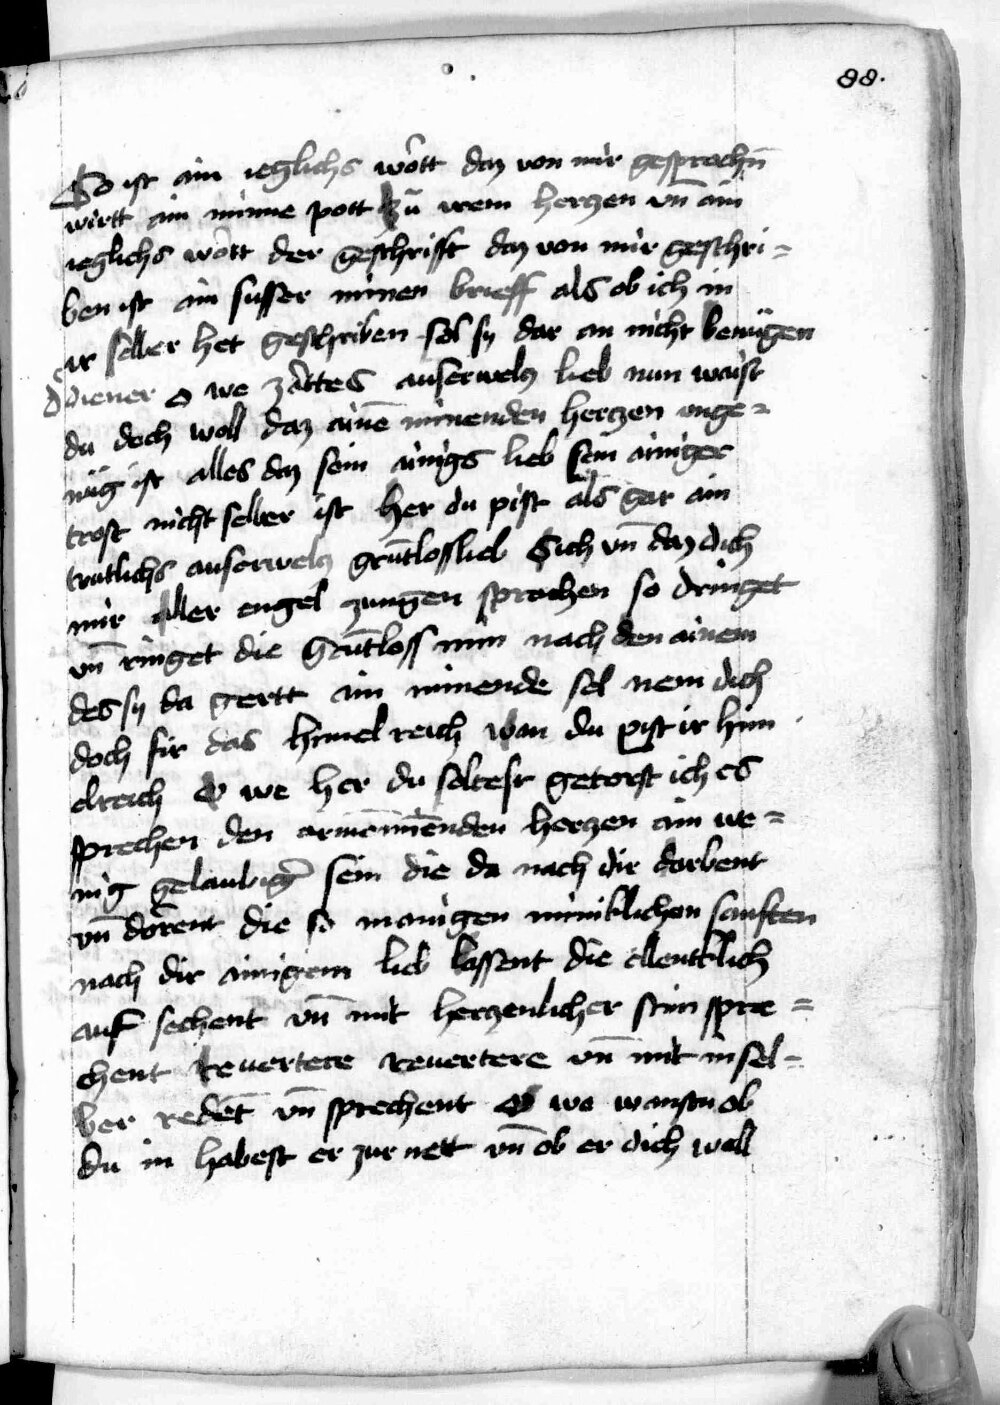 88.
So ist ain ieglichs wort daz von mir gesprochn̄
wirtt ain minne pott zů irem herczen vn̄ ain
ieglichs wort der geschrifft daz von mir geschri=
ben ist ain susser minen brieff als ob ich in
ir selber het geschriben sol sy dar an nicht benügen
diener o we zartes auserwelcz lieb nun waist
du doch woll daz aine͞ minenden herczen vnge=
nüg ist alles daz sein ainigs lieb sein ainiger
trost nicht selber ist her du pist als gar ain
trutlichs auserwelcz gru͞tlosslieb Sich vn̄ daz dich
mir aller engel zungen sprachen so dringet
vn̄ ringet die gru͞tloss min nach den ainem
des sy da gertt ain minende sel nem dich
doch fir das himel reich wan du pist ir him
elreich O we her du soltest getorst ich es
sprechen den arme͞ mine͞nden herczen ain we=
nig gelaubig͛ sein die da nach dir dorbent
vn̄ dorent die so manigen miniklichen sauften
nach dir ainigem lieb lassent die ellentklich
auf sechent vn̄ mit herczenlicher stim spre=
chent Reuertere reuertere vn̄ mit in sel=
ber rede͞t vn̄ sprechent O we wanstu ob
du in habest er zur nett vn̄ ob er dich woll